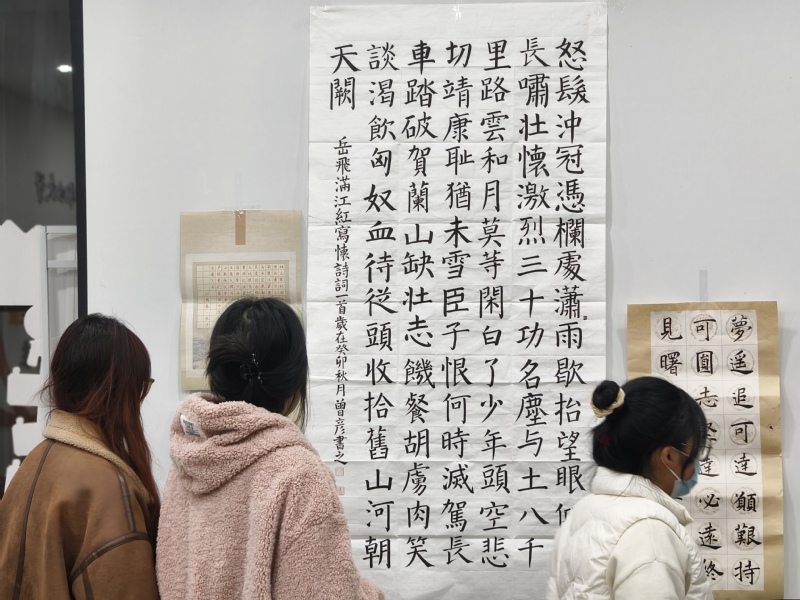 夢遥追可達願艱持
可圓志達必遠終
見曙
怒髮沖冠憑欄處瀟雨歇抬望眼
長嘯壯懷激烈三十功名塵与土八千
里路雲和月莫等閑白了少年頭空悲
切靖康耻猶未雪臣子恨何時滅駕長
車踏破賀蘭山缺壯志饑餐胡虜肉笑
談渴飲匈奴血待従頭收拾舊山河朝
天闕
岳飛滿江紅寫懷詩詞一首歲在癸卯秋月曾彥書之